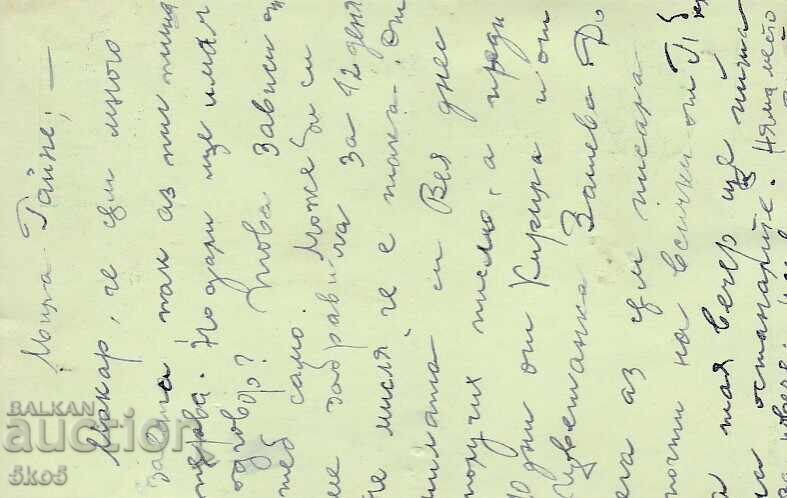 Мила Гайне, —
Макар, че съм много
заета пак аз ти пиша
първа. Но дали ще имам
отговор? Това зависи от
теб само. Може би си
ме забравила за 12 дена
Не мисля че е така. От
милата си Вея днес
получих писмо, а преди
10 дни от Кирира и от
Цветанка Зашева До
сега аз съм писала
почти на всички от
и тая вечер ще пиша
на останалите. Няма место
BALKAN
auction
öko5